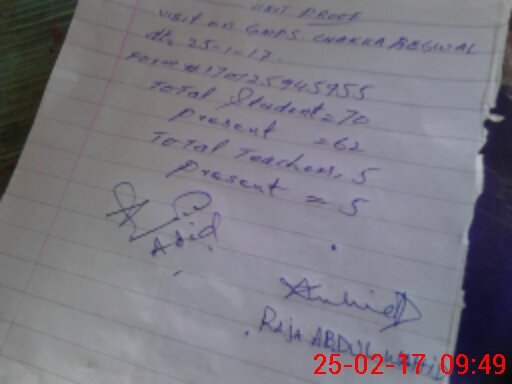 VISIT PROOF
visit on GMPS. CHAKKA BEGWAL
dt. 25-1-17.
Form # 170125945955
Total Student = 70
present = 62
Total Teachers, 5
present = 5
Ajid
RAJA ABDUL WAHID
25-02-17 09:49